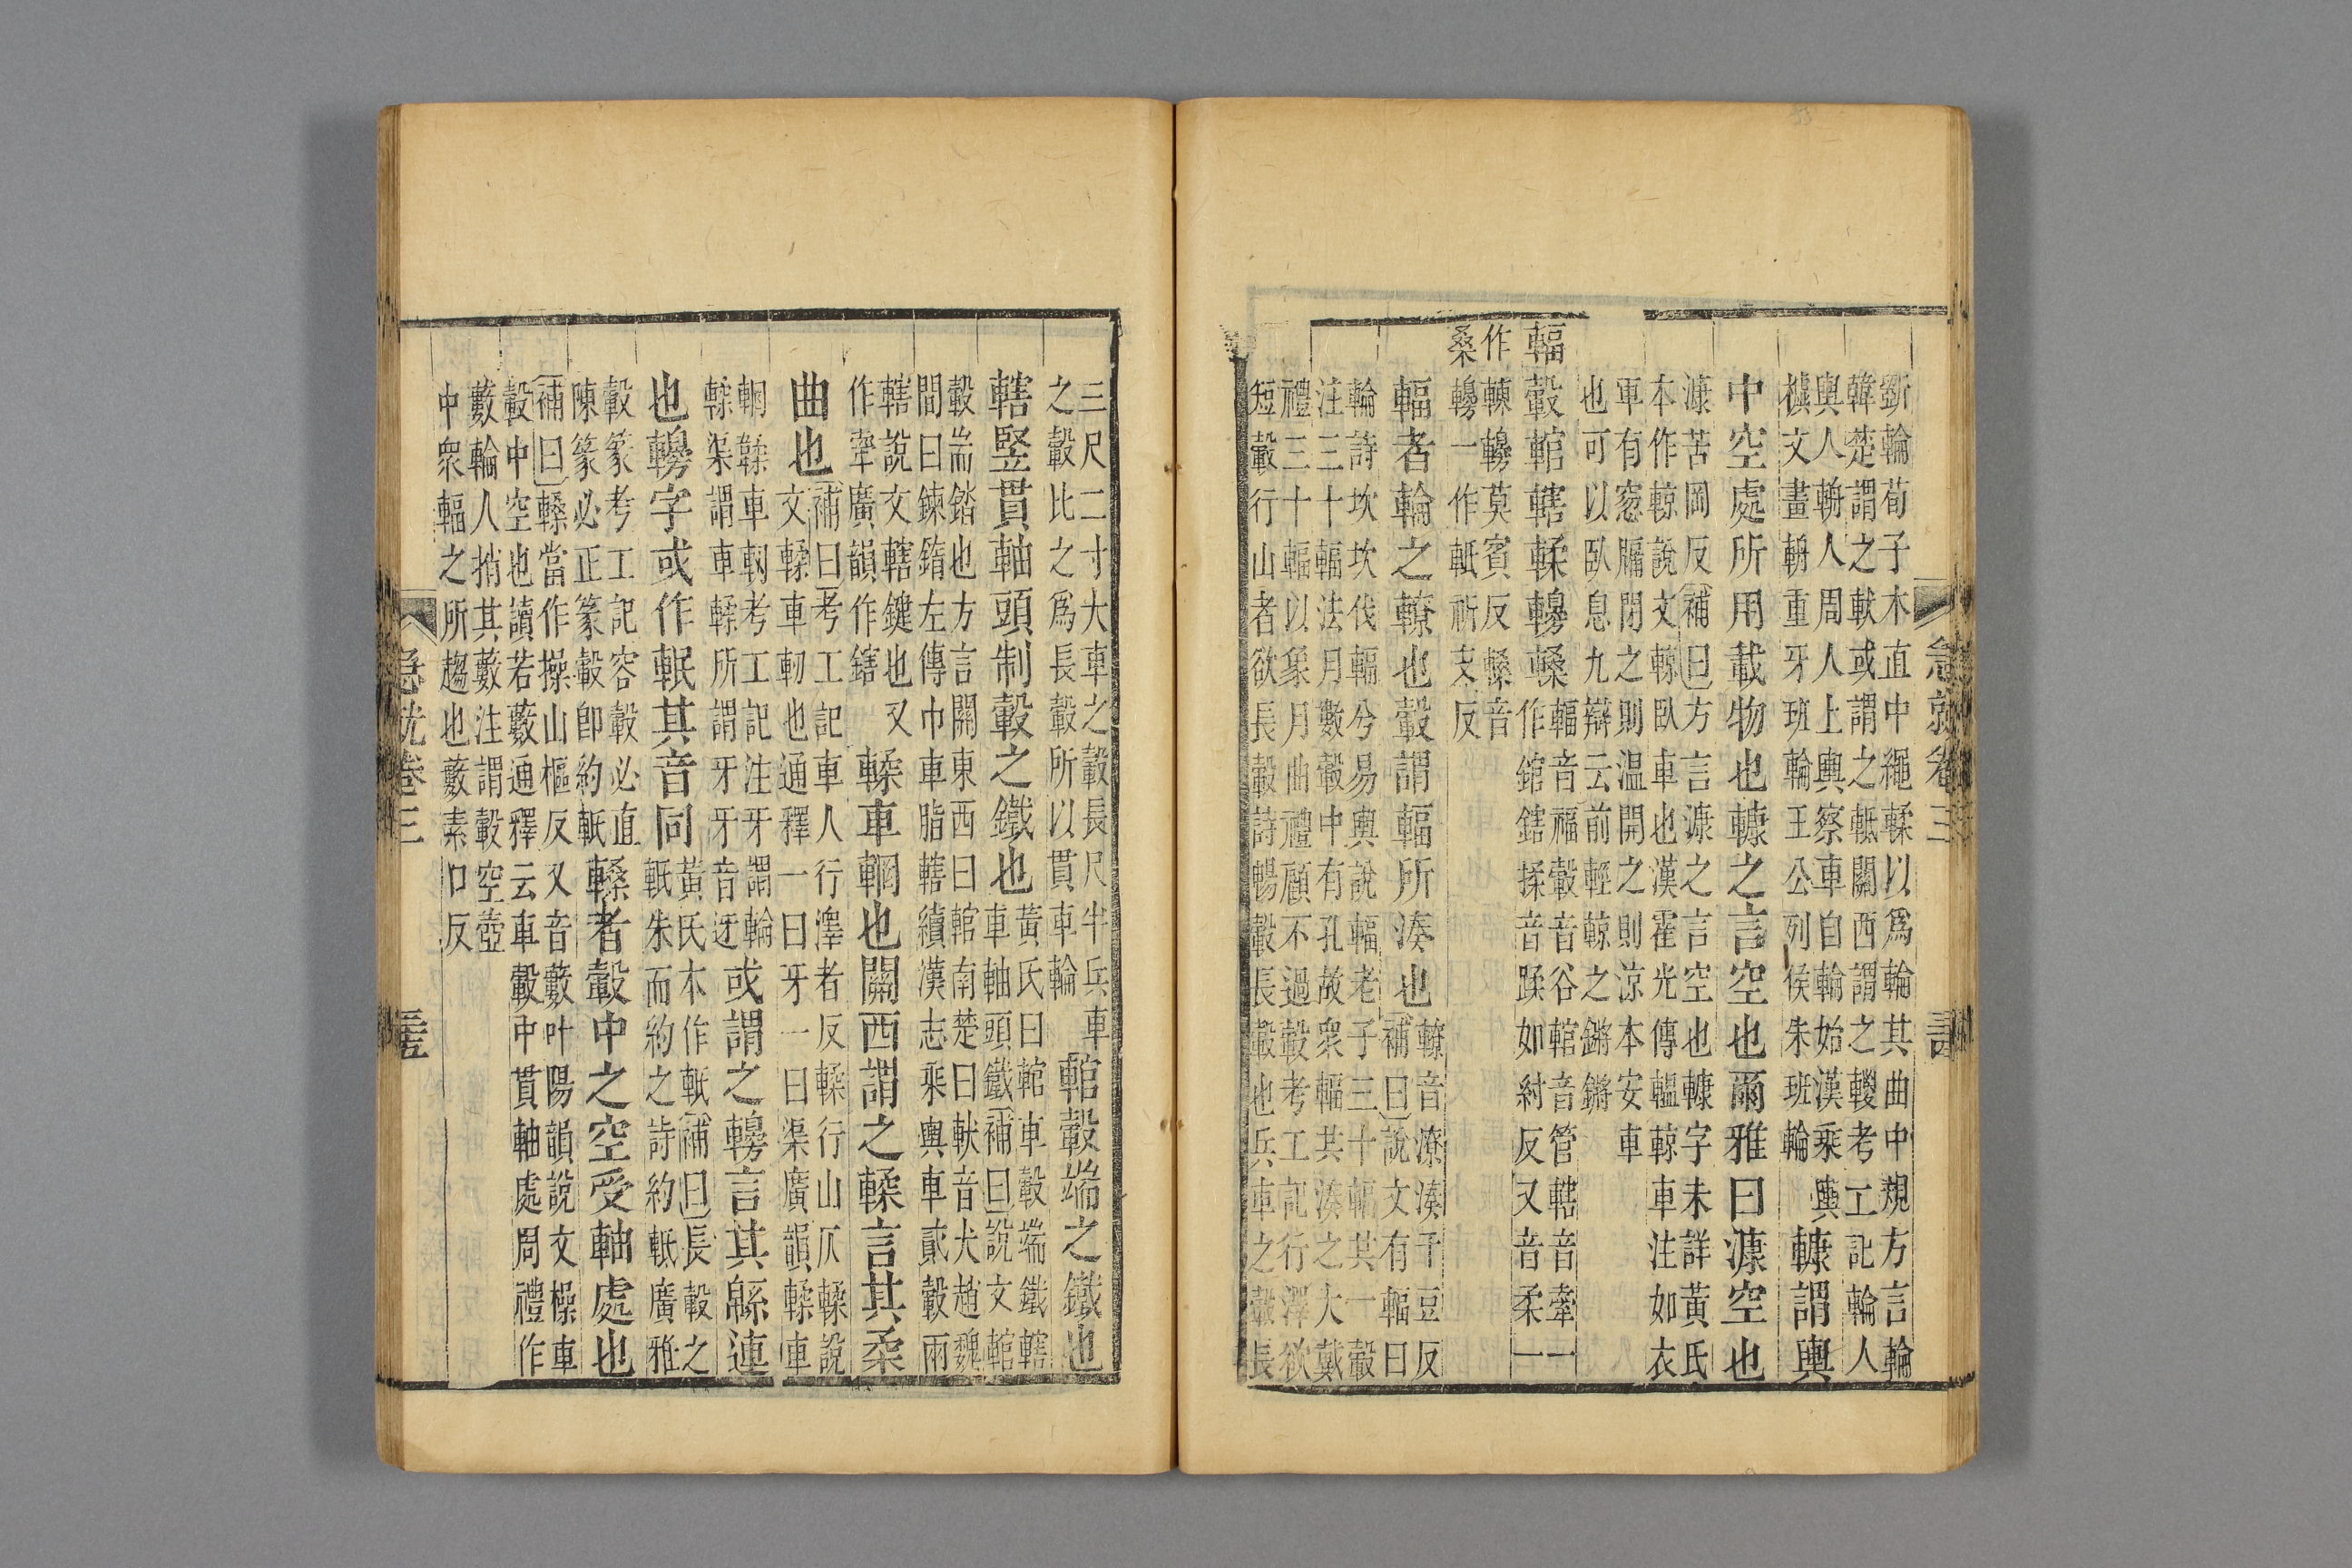 斵輪荀子木直中繩輮以爲輪其曲中規方言輪
韓楚謂之軑或謂之軝關西謂之輚考工記輪人
輿人輈人周人上輿察車自輪始漢乘輿
文畫輈重牙班輪王公列侯朱班輪
轅謂輿
中空處所用載物也轅之言空也爾雅曰漮空也
漮苦岡反補曰方言漮之言空也字未詳黃氏
本作輬說文輬臥車也漢霍光傳輼輬車注如衣
車有窓牖閉之則温開之則涼本安車
也可以臥息九辯云前輕輬之鏘鏘
輻轂輨轄輮輮轑
輻音福轂音谷輨音管轄音舝一
作錧鎋揉音蹂如紂反又音柔一
作輮莫賓反音
桑一作軝祈支反
輻者輪之轑也轂謂輻所湊也
轑音潦湊千豆反
補曰說文有輻曰
輪詩坎坎伐輻兮易輿說輻老子三十輻共一轂
注三十輻法月數轂中有孔故衆輻共湊之大戴
禮三十輻以象月曲禮顧不過轂考工記行澤欲
短轂行山者欲長轂詩暢轂長轂也兵車之轂長
急就卷三
三尺二寸大車之轂長尺半兵車
之轂比之爲長轂所以貫車輪
輨轂端之鐵也
轄豎貫軸頭制轂之鐵也
黃氏曰輨車轂端鐵轄
車軸頭鐵補曰說文輨
轂耑錔也方言關東西曰輨南楚曰軑音犬趙魏
間曰鍊鐫左傳巾車脂轄續漢志乘輿車貳轂兩
轄說文轄鍵也又
作舝廣韻作鎋
輮車輞也關西謂之輮言其柔
曲也
補曰考工記車人行澤者反輮行山仄輮說
文輮車軔也通釋一曰牙一曰渠廣韻輮車
輞車軔考工記注牙謂輪
輮渠謂車輮所謂牙牙音迓
或謂之言其緜連
也字或作輾其音同
黃氏本作軝補曰長轂之
軝朱而約之詩約軝廣雅
轂篆考工記容轂必直
陳篆必正篆轂卽約軝
者轂中之空受軸處也
補曰當作操山樞反又音藪叶陽韻說文橾車
轂中空也讀若藪通釋云車轂中貫軸處周禮作
藪輪人捎其藪注謂轂空壺
中衆輻之所趨也藪素口反
急就卷三